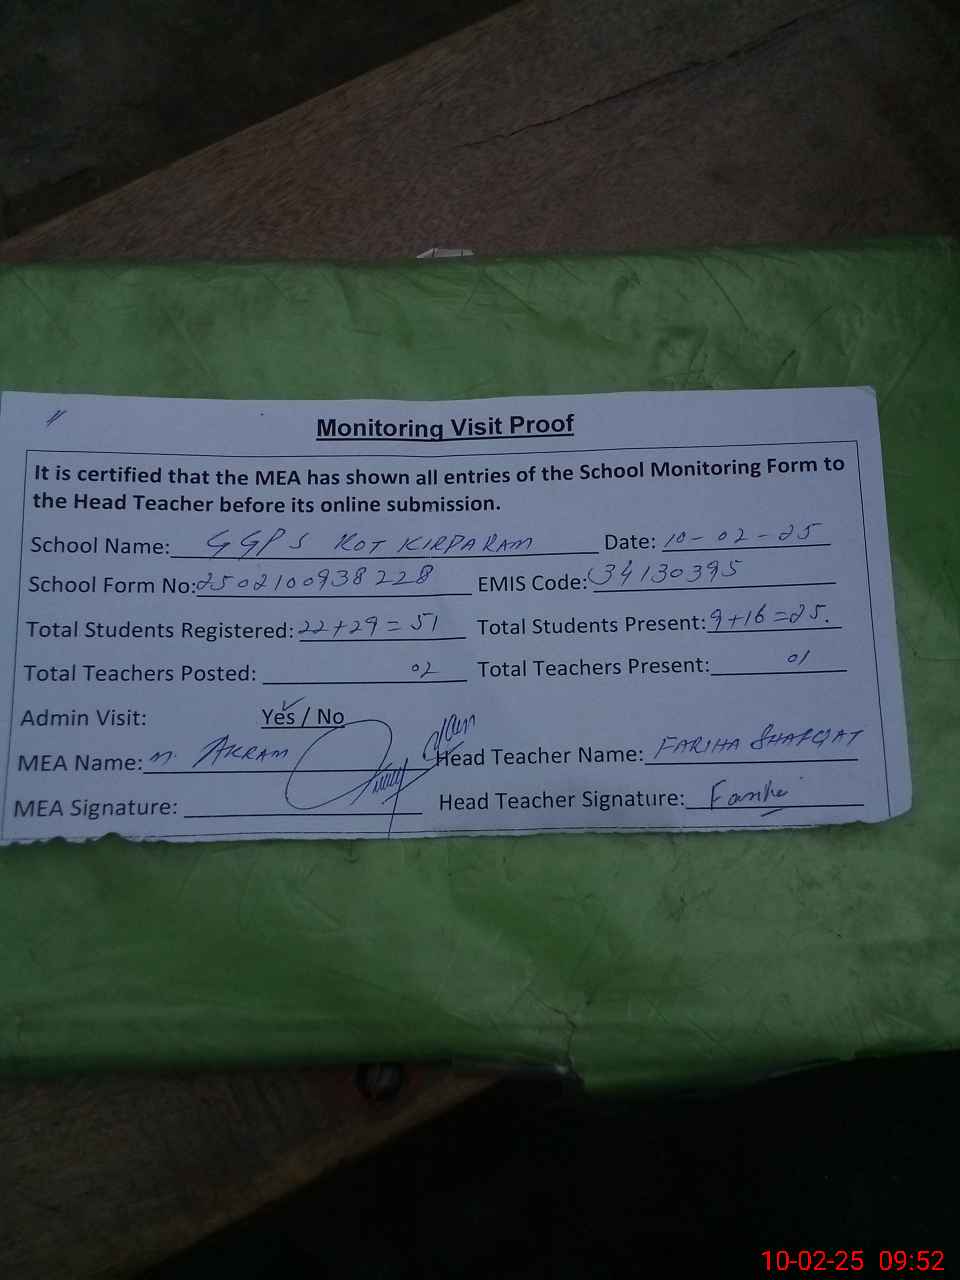 Monitoring Visit Proof
It is certified that the MEA has shown all entries of the School Monitoring Form to
the Head Teacher before its online submission.
School Name: GGPS KOT KIRPARAM Date: 10-02-25
School Form No: 2502100938228 EMIS Code: 34130395
Total Students Registered: 22+29=51 Total Students Present: 9+16=25.
Total Teachers Posted: 02 Total Teachers Present: 01
Admin Visit: Yes / No
MEA Name: M. AKRAM Head Teacher Name: FARIHA SHAFQAT
MEA Signature: Head Teacher Signature:
10-02-25 09:52